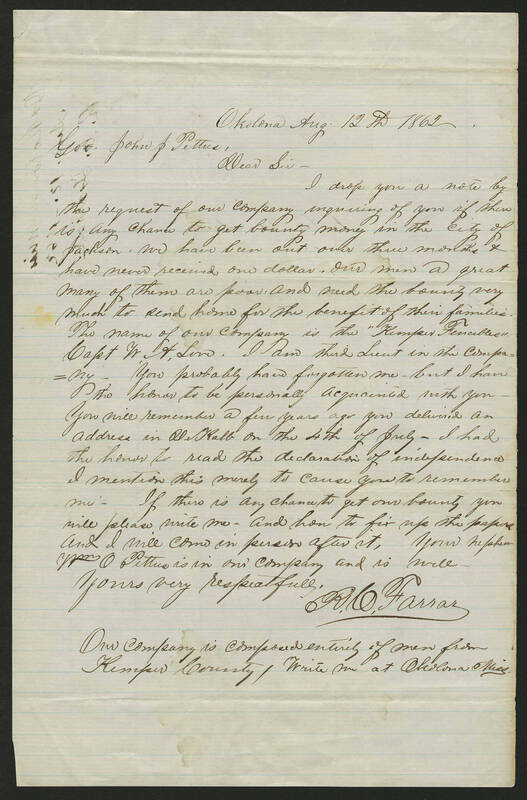 Okolona Aug. 12th 1862
Gov. John J Pettus,
Dear Sir -
I drop you a note by
the request of our company inquiring of you if there
is any chance to get bounty money in the City of
Jackson. We have been out over three months &
have never received one dollar. Our men a great
many of them are poor and need the bounty very
much to send home for the benefit of their families.
The name of our company is the "Kemper Fencibles"
Capt W. H. Love. I am third Lieut in the Compa-
=ny- You probably have forgotten me - but I have
the honor to be personally acquainted with you -
You will remember a few years ago you delivered an
address in DeKalb on the 4th of July - I had
the honor to read the declaration of independence
I mention this merely to cause you to remember
me - If there is any chance to get our bounty you
will please write me - and how to fix up the papers
and I will come in person after it. Your nephew
Wm O Pettus is in our company and is well -
Yours very respectfull,
R. C. Farrar
Our company is composed entirely of men from
Kemper County / Write me at Okolona Miss.